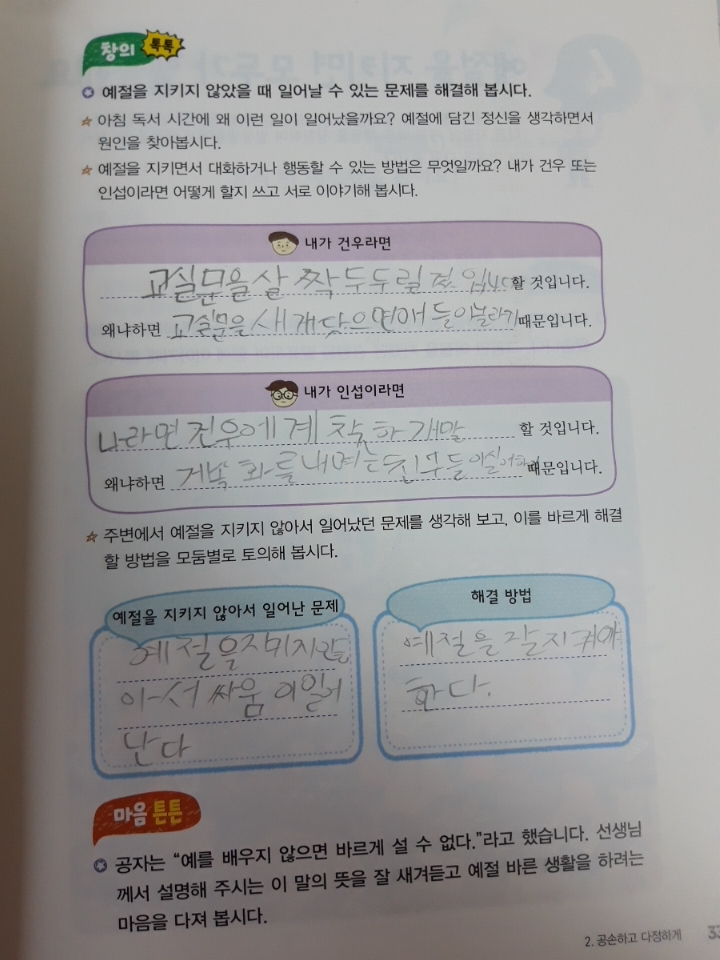 창의 톡톡
예절을 지키지 않았을 때 일어날 수 있는 문제를 해결해 봅시다.
아침 독서 시간에 왜 이런 일이 일어났을까요? 예절에 담긴 정신을 생각하면서
원인을 찾아봅시다.
예절을 지키면서 대화하거나 행동할 수 있는 방법은 무엇일까요? 내가 건우 또는
인섭이라면 어떻게 할지 쓰고 서로 이야기해 봅시다.
내가 건우라면
교실문을 살짝 두두릴 할 것입니다.
왜냐하면 교실문을 새개닷으면애들이놀라기 때문입니다.
내가 인섭이라면
나라면 건우에게 착하개말 할 것입니다.
왜냐하면 화를내며는 친구들이실어하 때문입니다.
주변에서 예절을 지키지 않아서 일어났던 문제를 생각해 보고, 이를 바르게 해결
할 방법을 모둠별로 토의해 봅시다.
예절을 지키지 않아서 일어난 문제
예절을지키지안
아서 싸움이일어
난다
해결 방법
예절을 잘지켜야
한다.
마음 튼튼
공자는 “예를 배우지 않으면 바르게 설 수 없다.”라고 했습니다. 선생님
께서 설명해 주시는 이 말의 뜻을 잘 새겨듣고 예절 바른 생활을 하려는
마음을 다져 봅시다.
2. 공손하고 다정하게 33